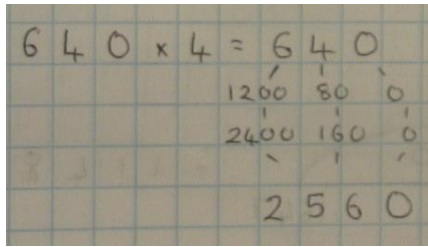 640 × 4 = 640
1200 80 0
2400 160 0
2560